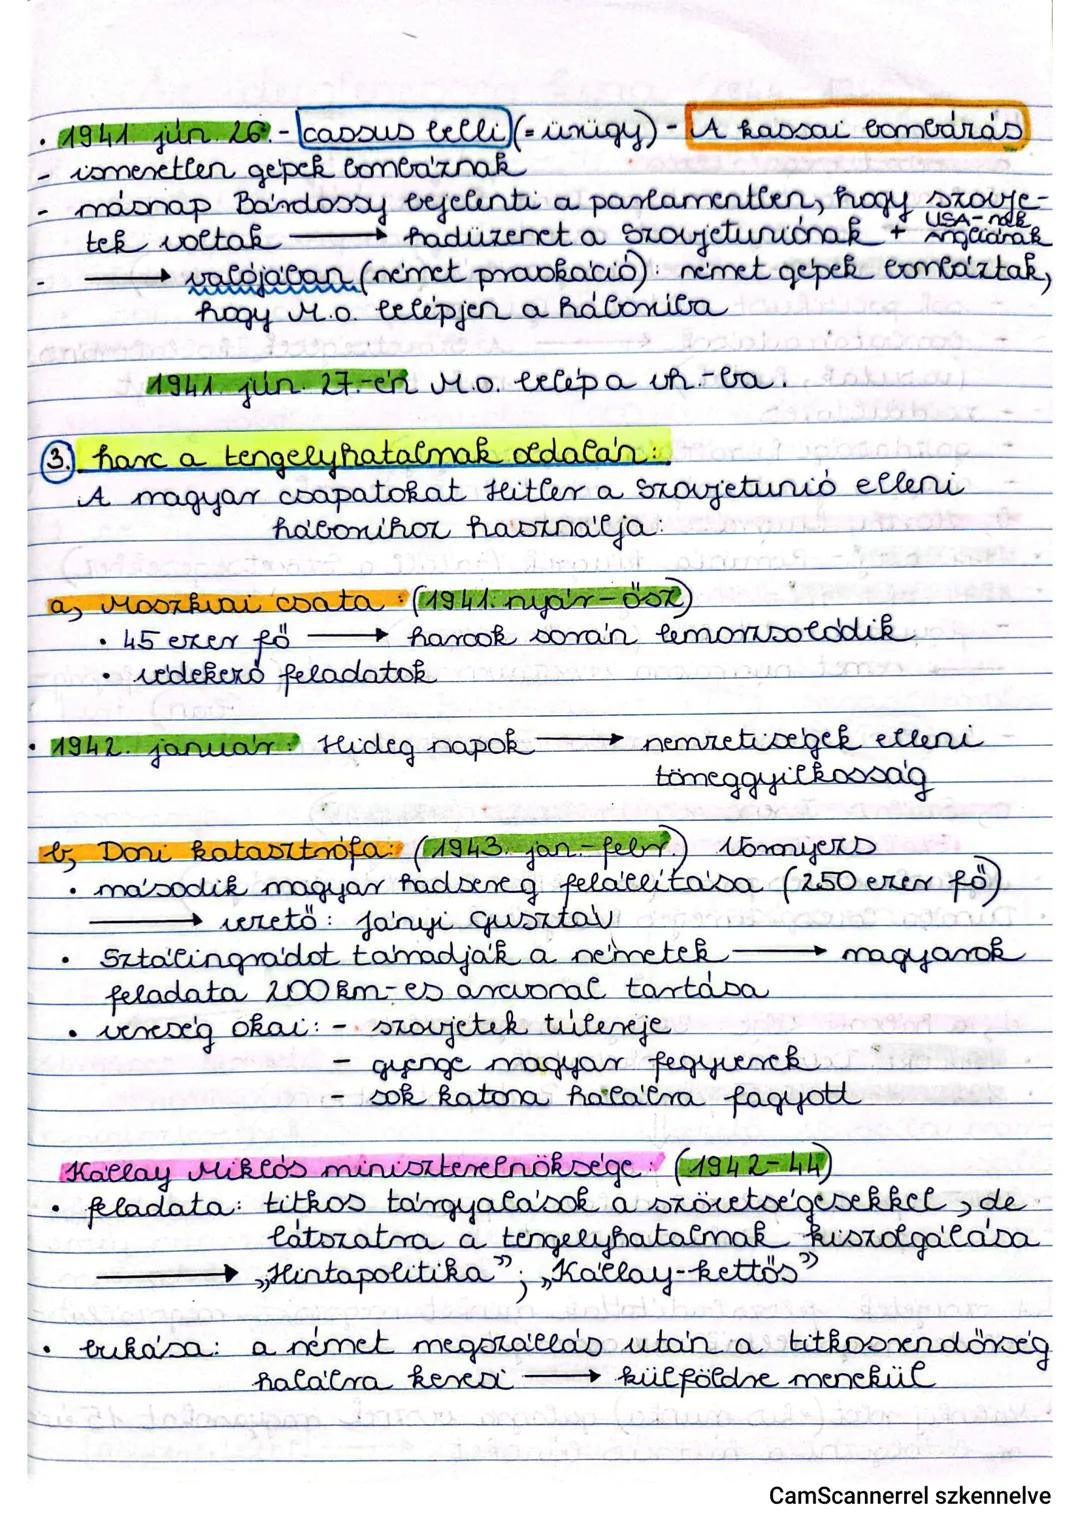 • 1941 jún. 26. - cassus belli (= ürügy) - A kassai bombázás
- ismeretlen gépek bombáznak
- másnap Bárdossy bejelenti a parlamentben, hogy szovje-
tek voltak → hadüzenet a Szovjetuniónak + USA-nak Angliának
- → valójában (német provokáció): német gépek bombáztak,
hogy M.o. belépjen a háborúba
1941. jún. 27.-én M.o. belép a vh.-ba.
3. harc a tengelyhatalmak oldalán:
A magyar csapatokat Hitler a Szovjetunió elleni
háborúhoz használja:
a, Moszkvai csata: (1941. nyár-ősz)
• 45 ezer fő → harcok során lemorzsolódik
• védekező feladatok
• 1942. január: Hideg napok → nemzetiségek elleni
tömeggyilkosság
b, Doni katasztrófa: (1943. jan.-febr.) Voronyezs
• második magyar hadsereg felállítása (250 ezer fő)
→ vezető: Jányi Gusztáv
• Sztálingrádot támadják a németek → magyarok
feladata 200 km-es arcvonal tartása
• vereség okai: - szovjetek túlereje
- gyenge magyar fegyverek
- sok katona halálra fagyott
Kállay Miklós miniszterelnöksége: (1942-44)
• feladata: titkos tárgyalások a szövetségesekkel, de
látszatra a tengelyhatalmak kiszolgálása
→ „Hintapolitika"; „Kállay-kettős"
• bukása: a német megszállás után a titkosrendőrség
halálra keresi → külföldre menekül
CamScannerrel szkennelve